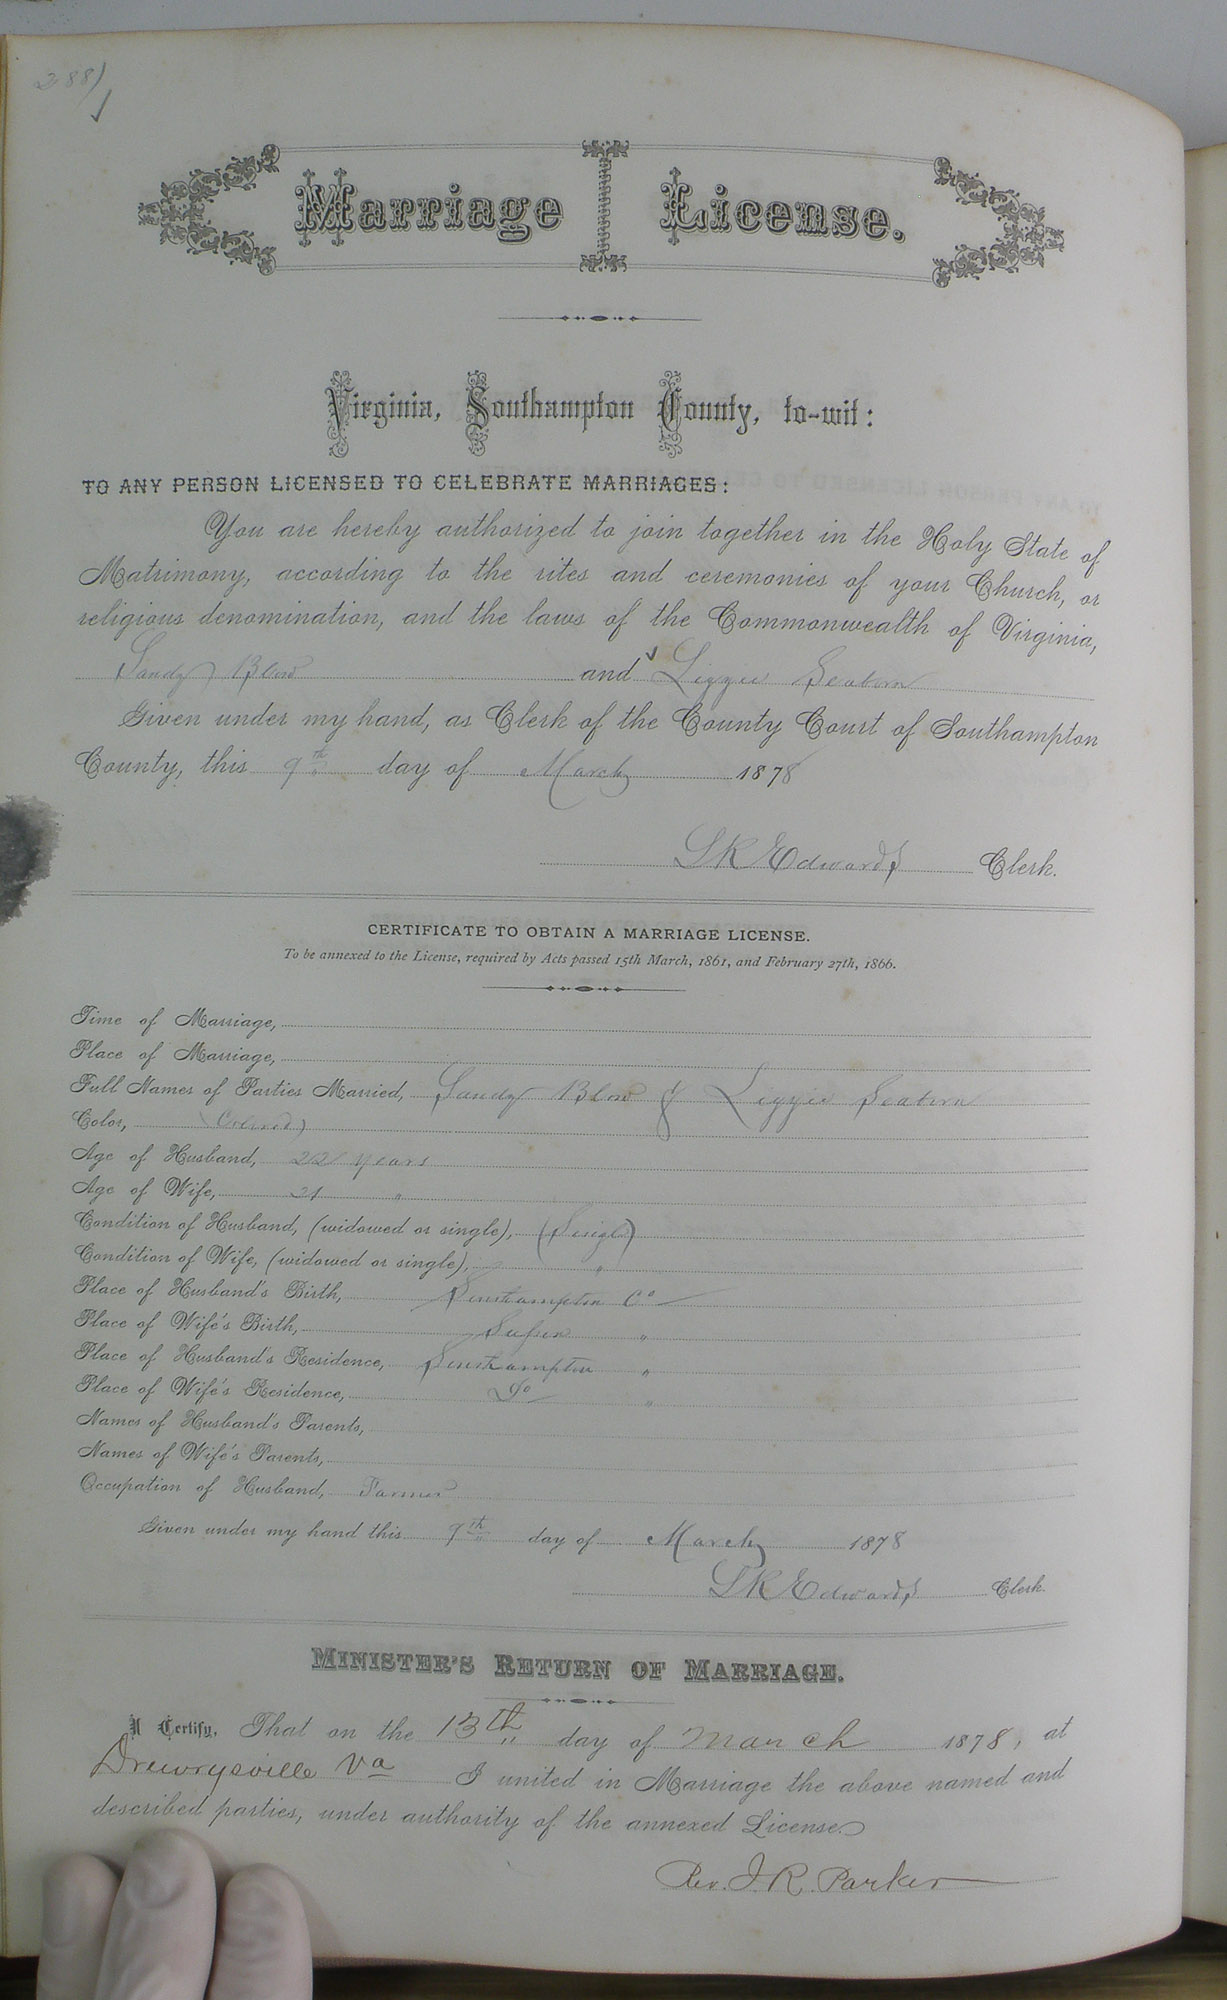 288)
Marriage License.
Virginia, Southampton County, to-wit:
TO ANY PERSON LICENSED TO CELEBRATE MARRIAGES:
You are hereby authorized to join together in the Holy State of
Matrimony, according to the rites and ceremonies of your Church, or
religious denomination, and the laws of the Commonwealth of Virginia,
Sandy Blow and Lizzie Seaborn
Given under my hand, as Clerk of the County Court of Southampton
County, this 9th day of March 1878
L R Edwards Clerk.
CERTIFICATE TO OBTAIN A MARRIAGE LICENSE.
To be annexed to the License, required by Acts passed 15th March, 1861, and February 27th, 1866.
Time of Marriage,
Place of Marriage,
Full Names of Parties Married, Sandy Blow & Lizzie Seaborn
Color, (Colored)
Age of Husband, 22 years
Age of Wife, 21 "
Condition of Husband, (widowed or single), (Single)
Condition of Wife, (widowed or single), "
Place of Husband's Birth, Southampton Co
Place of Wife's Birth, Sussex "
Place of Husband's Residence, Southampton "
Place of Wife's Residence, Do "
Names of Husband's Parents,
Names of Wife's Parents,
Occupation of Husband, Farmer
Given under my hand this 9th day of March 1878
L R Edwards Clerk.
MINISTER'S RETURN OF MARRIAGE.
I Certify, That on the 13th day of March 1878, at
Drewrysville Va I united in Marriage the above named and
described parties, under authority of the annexed License.
Rev. J. R. Parker